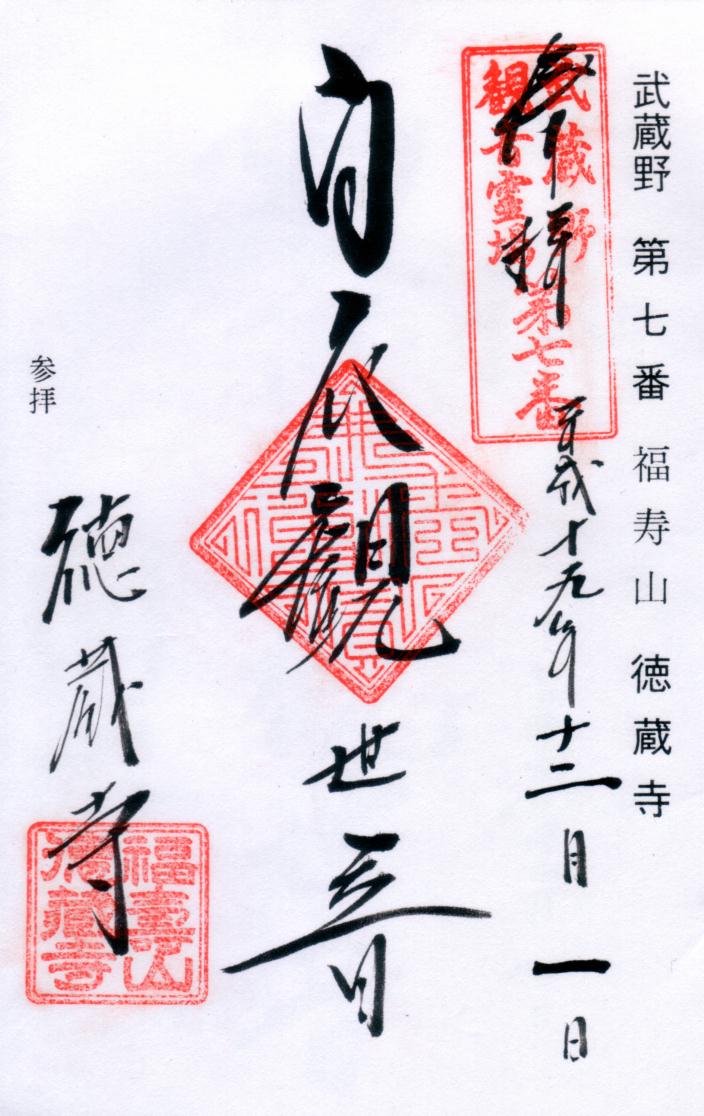 武蔵野 第七番 福寿山 徳蔵寺
武蔵野
観音霊場 第七番
奉拝
平成十九年十二月一日
白衣観世音
参拝
徳蔵寺
福壽山
徳蔵寺